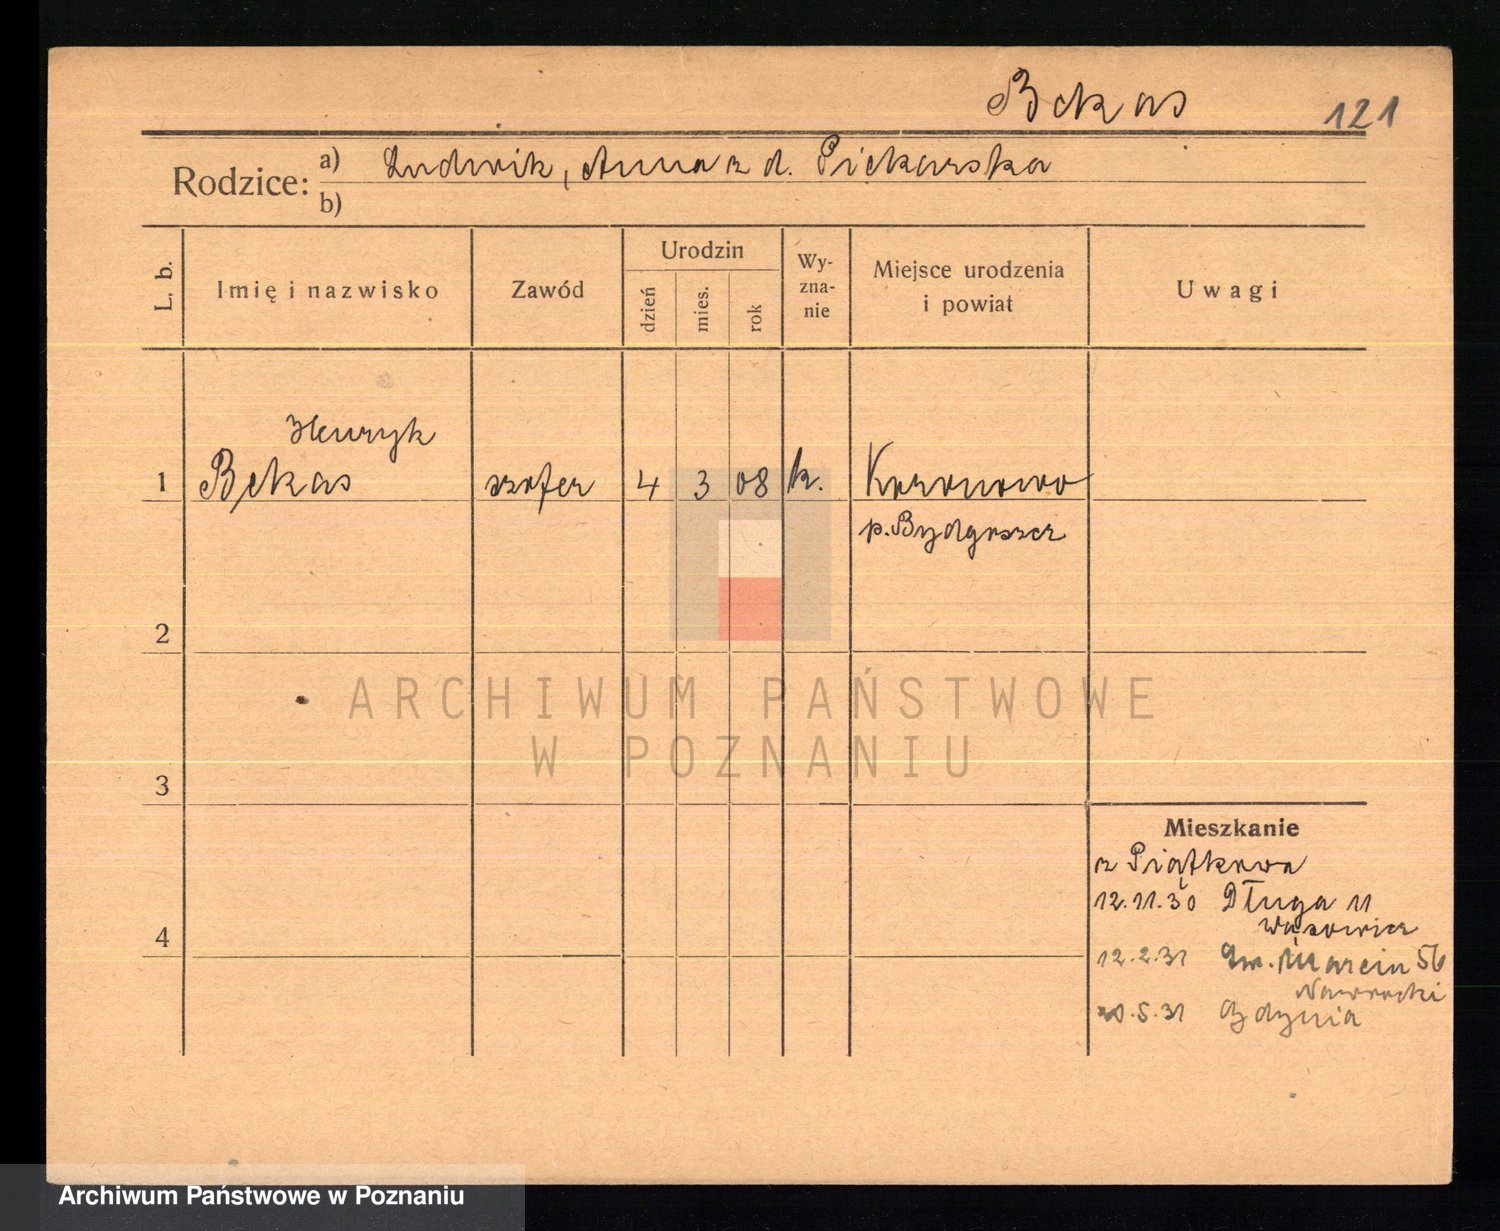 Bekas 121
Rodzice: a) Ludwik, Anna z d. Piekarska
b)
L. b. Imię i nazwisko Zawód Urodzin dzień mies. rok Wy-zna-nie Miejsce urodzenia i powiat Uwagi
Henryk
1 Bekas szofer 4 3 08 k. Koronowo
p. Bydgoszcz
2
ARCHIWUM PAŃSTWOWE
W POZNANIU
3
Mieszkanie
z Piątkowa
12.11.30 Długa 11
Wąsowicz
4
12.2.31 Św. Marcin 56
Nawrocki
.5.31 Gdynia
Archiwum Państwowe w Poznaniu